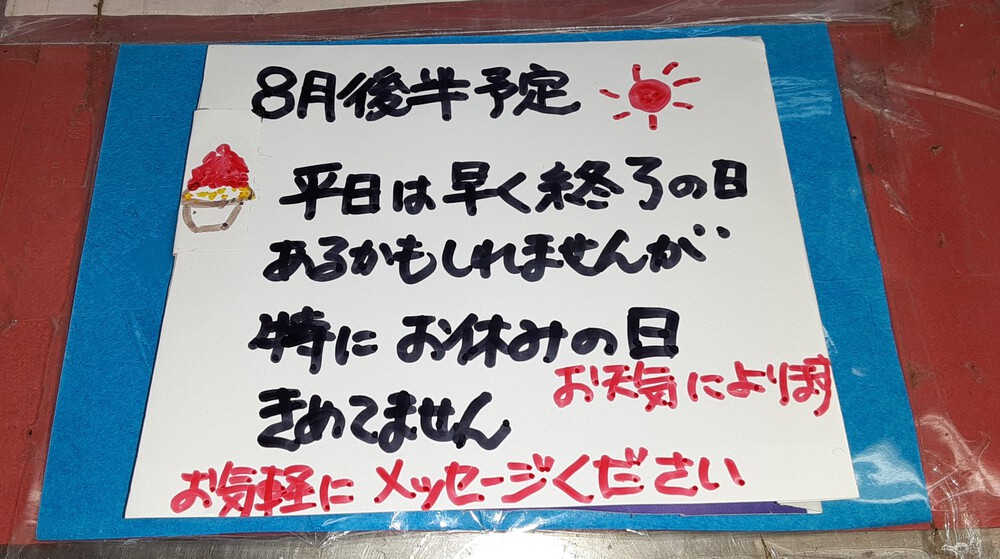 8月後半予定
平日は早く終了の日
あるかもしれませんが
特にお休みの日
お天気によります
きめてません
お気軽にメッセージください